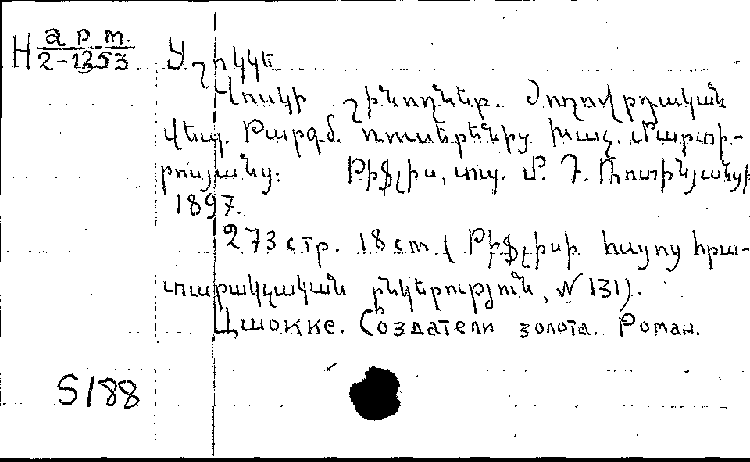 Н арт.
2-1253
Չշոկկե
Ոսկի շինողներ. Ժողովրդական
վեպ. Թարգմ. ռուսերենից Խաչ. Մարտի-
րոսյանց. Թիֆլիս, տպ. Մ. Դ. Ռոտինյանցի
1897.
273 стр. 18 см. (Թիֆլիսի հայոց հրա-
տարակչական ընկերություն, № 131).
Цшокке. Создатели золота. Роман.
5188